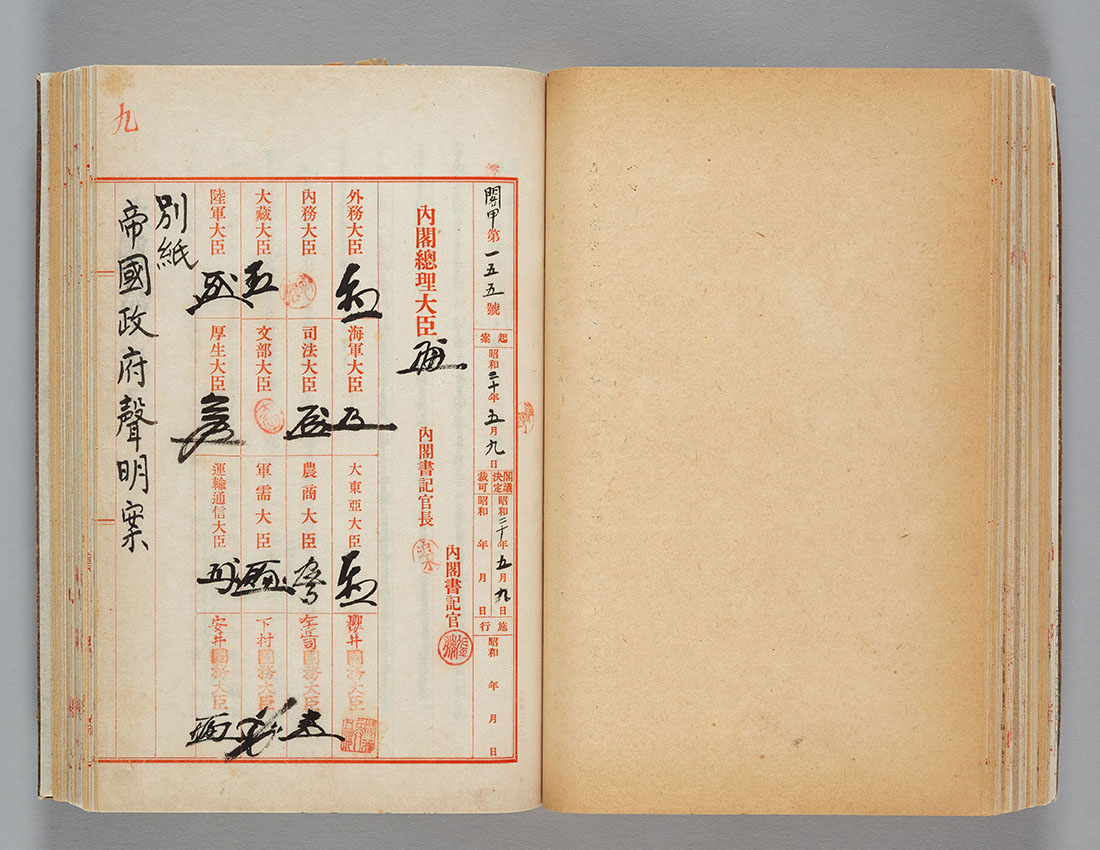 九
閣甲第一五五號
起案
昭和二十年五月九日
閣議決定
昭和二十年五月九日
裁可
昭和 年 月 日
施行
昭和 年 月 日
內閣總理大臣
內閣書記官長
內閣書記官
外務大臣
海軍大臣
大東亞大臣
櫻井國務大臣
內務大臣
司法大臣
農商大臣
左近司國務大臣
大藏大臣
文部大臣
軍需大臣
下村國務大臣
陸軍大臣
厚生大臣
運輸通信大臣
安井國務大臣
別紙
帝國政府聲明案